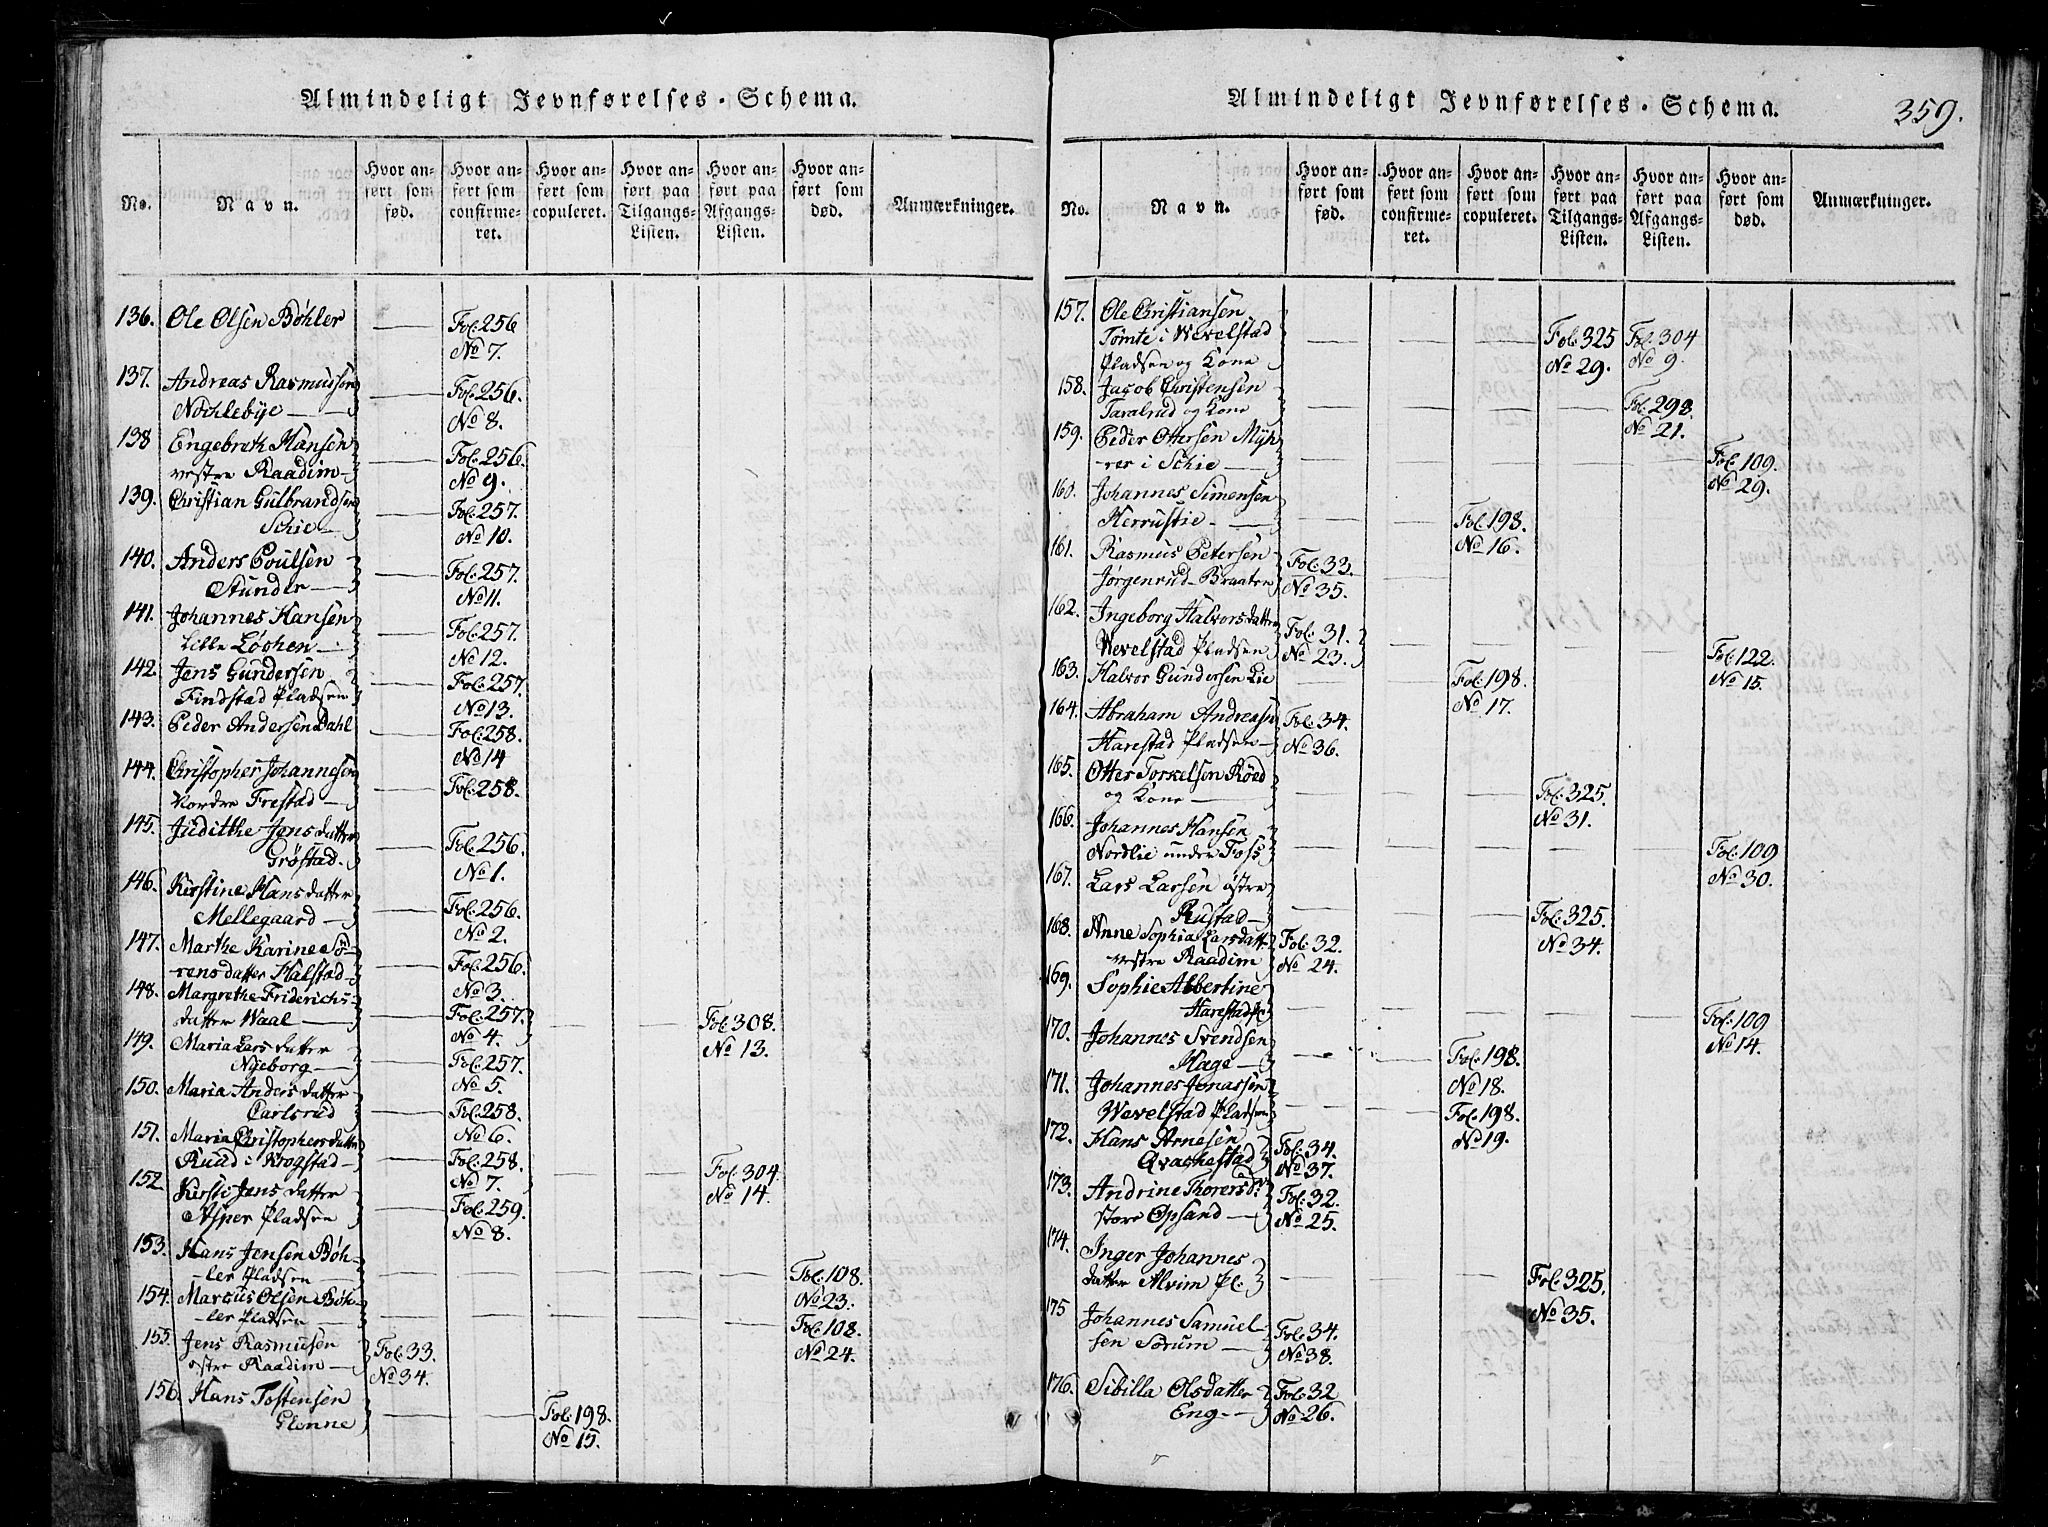 Almindeligt Jevnførelses-Schema.
No.
Navn.
Hvor an-
ført som
fød.
Hvor an-
ført som
confirme-
ret.
Hvor an-
ført som
copuleret.
Hvor an-
ført paa
Tilgangs-
Listen.
Hvor an-
ført paa
Afgangs-
Listen.
Hvor an-
ført som
død.
Anmærkninger.
136. Ole Olsen Bøhler — Fol: 256
No 7.
137. Andreas Rasmussen
Nochlebye — — Fol: 256.
No 8.
138 Engebreth Hansen
vestre Raadim — — Fol: 256.
No 9.
139. Christian Gulbrandsen
Schie — — Fol: 257.
No 10.
140. Anders Poulsen
Stunder — — Fol: 257.
No 11.
141. Johannes Hansen
lille Løchen — — Fol: 257.
No 12.
142. Jens Gundersen
Findstad Pladsen — Fol: 257.
No 13.
143. Peder Andersen Dahl — Fol: 258.
No 14
144. Christopher Johannesen
Nordre Frestad — — Fol: 258.
145. Judithe Jens datter
Grøstad. — Fol: 256.
No 1.
146. Kirstine Hans datter
Mellegaard — — Fol: 256.
No 2.
147. Marthe Karine Sö-
rensdatter Halstad — Fol: 256.
No 3.
148. Margrethe Friderichs-
datter Waal — — Fol: 257. — — Fol: 308.
No 4. No 13.
149. Maria Lars datter
Nyeborg — — Fol: 257.
No 5.
150. Maria Anders datter
Carlsrud — Fol: 258.
No 6.
151. Maria Christophersdatter
Ruud i Krogstad — — Fol: 258. — — Fol: 304.
No 7. No 14.
152. Kirsti Jens datter
Asper Pladsen — Fol: 259.
No 8.
153. Hans Jensen Bøh-
ler Pladsen — — — — — — Fol: 108.
No 23.
154. Marcus Olsen Bøh-
ler Pladsen — — — — — — Fol: 108.
No 24.
155. Jens Rasmusen
østre Raadim — Fol: 33.
No 34.
156. Hans Tostensen
Glenne — — Fol: 198.
No 15.
Almindeligt Jevnførelses-Schema.
359.
No.
Navn.
Hvor an-
ført som
fød.
Hvor an-
ført som
confirme-
ret.
Hvor an-
ført som
copuleret.
Hvor an-
ført paa
Tilgangs-
Listen.
Hvor an-
ført paa
Afgangs-
Listen.
Hvor an-
ført som
død.
Anmærkninger.
157. Ole Christiansen
Tømte i Wevelstad — — — Fol: 325 Fol: 304
Pladsen og Kone No 29. No 9.
158. Jacob Christensen
Taralrud og Kone — — — — Fol: 298.
No 21.
159. Peder Ottersen Myh-
rer i Schie — — — — — — Fol: 109.
No 29.
160. Johannes Simensen
Herrustie — — — — Fol: 198.
No 16.
161. Rasmus Petersen
Jørgenrud Braaten Fol: 33.
No 35.
162. Ingeborg Halvorsdatter
Wevelstad Pladsen Fol: 31. — — — — Fol: 122.
No 23. No 15.
163. Halvor Gundersen Lie — — Fol: 198.
No 17.
164. Abraham Andreasen
Harestad Pladsen — Fol: 34.
No 36.
165. Otter Torkelsen Röed
og Kone — — — — Fol: 325.
No 31.
166. Johannes Hansen
Nordlie under Foss — — — — — Fol: 109
No 30.
167. Lars Larsen østre
Rustad — — — — Fol: 325.
No 34.
168. Anne Sophia Larsdatt.
vestre Raadim Fol: 32.
No 24.
169. Sophie Albertine
Harestad — — — — — Fol: 109
No 14.
170. Johannes Svendsen
Hage — — — Fol: 198.
No 18.
171. Johannes Jonassen
Wevelstad Pladsen — — Fol: 198.
No 19.
172. Hans Arnesen
Qvachestad Fol: 34.
No 37.
173. Andrine Thorersdr.
store Opsand — Fol: 32.
No 25.
174. Inger Johannes
datter Alvim Pl: — — — Fol: 325.
No 35.
175 Johannes Samuel-
sen Sørum — Fol: 34.
No 38.
176. Sibilla Olsdatter
Eng — — Fol: 32
No 26.